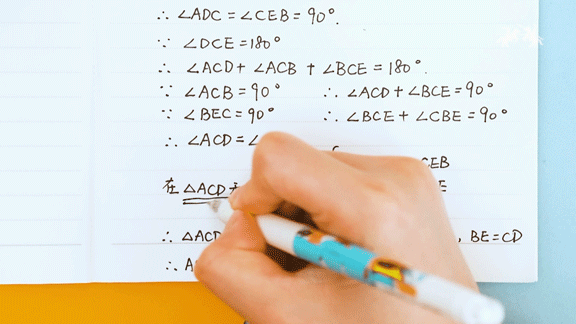 ∴ ∠ADC = ∠CEB = 90°.
∵ ∠DCE = 180°
∴ ∠ACD + ∠ACB + ∠BCE = 180°.
∵ ∠ACB = 90° ∴ ∠ACD + ∠BCE = 90°
∵ ∠BEC = 90° ∴ ∠BCE + ∠CBE = 90°
∴ ∠ACD = ∠
CEB
在 △ACD
∴ △ACD , BE = CD
∴ A